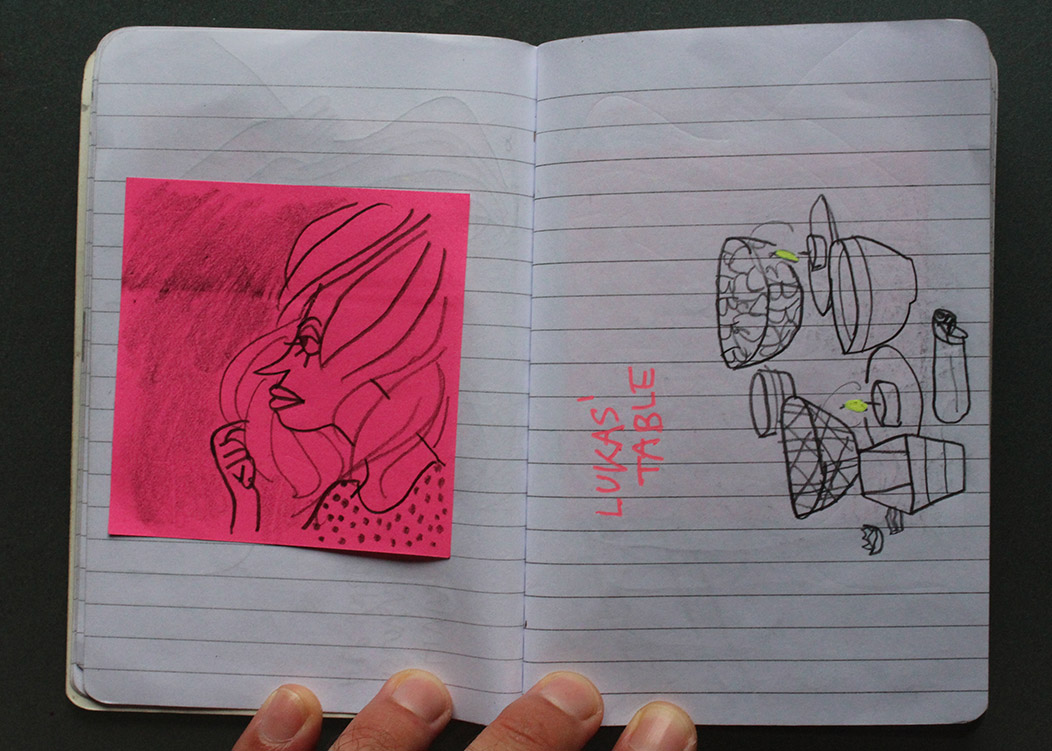 LUKAS'
TABLE